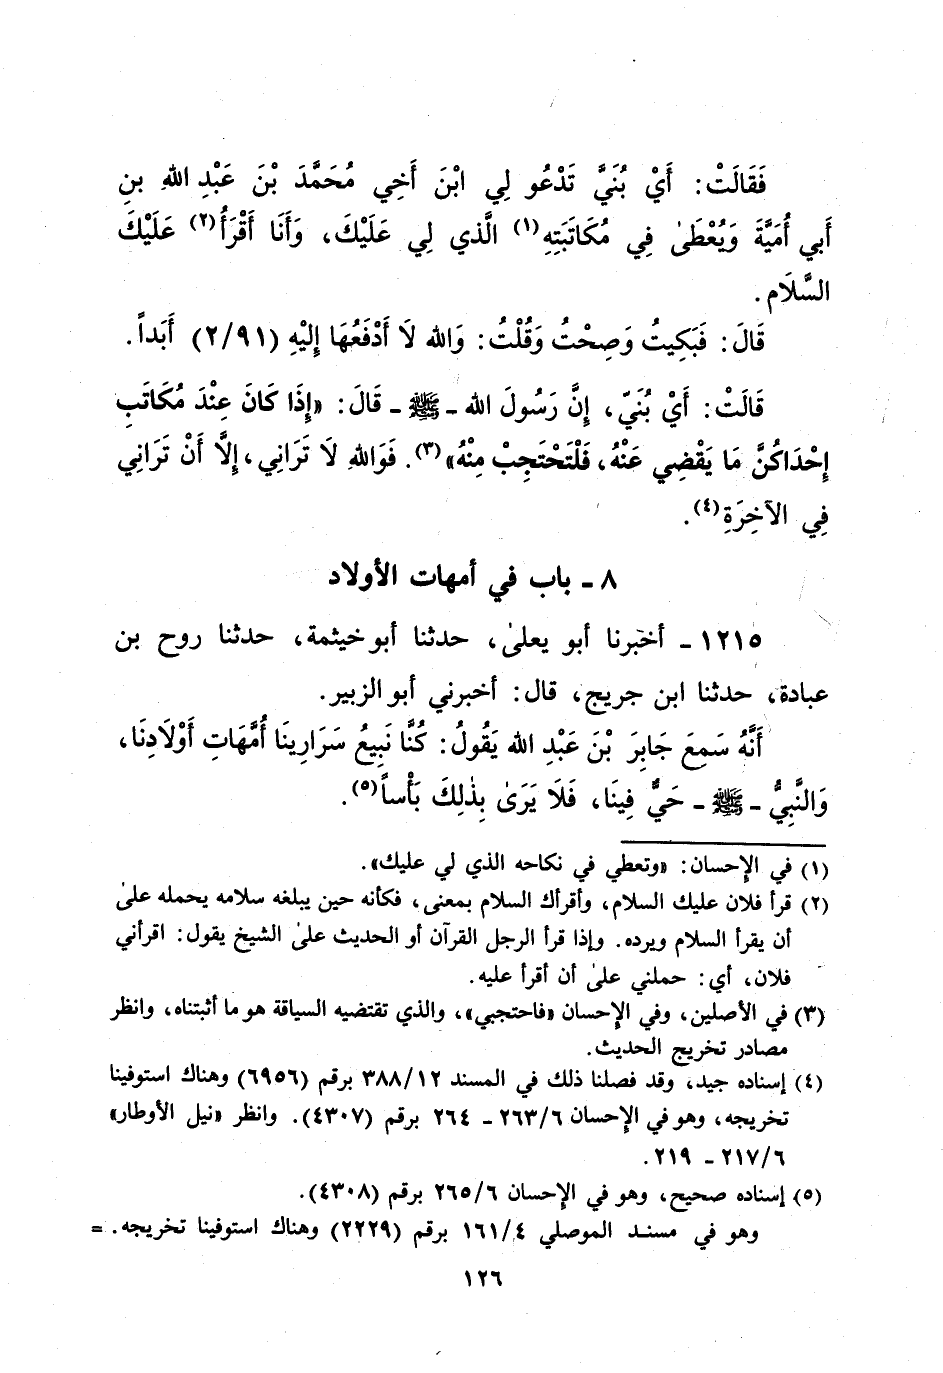 فَقَالَتْ: أَيْ بُنَيَّ تَدْعُو لِي ابْنَ أَخِي مُحَمَّدَ بْنَ عَبْدِ اللهِ بنِ
أَبي أُمَيَّةَ وَيُعْطَىٰ فِي مُكَاتَبَتِهِ(١) الَّذي لِي عَلَيْكَ، وَأَنَا أَقْرَأُ(٢) عَلَيْكَ
السَّلَام.
قَالَ: فَبَكِيتُ وَصِحْتُ وَقُلْتُ: وَالله لَا أَدْفَعُهَا إِلَيْهِ (٢/٩١) أَبَداً.
قَالَتْ: أَيْ بُنَيّ، إِنَّ رَسُولَ الله ـ ﷺ ـ قَالَ: «إِذَا كَانَ عِنْدَ مُكَاتَبِ
إِحْدَاكُنَّ مَا يَقْضِي عَنْهُ، فَلْتَحْتَجِبْ مِنْهُ»(٣). فَوَاللهِ لَا تَرَانِي، إِلَّا أَنْ تَرَانِي
فِي الآخِرَةِ(٤).
٨ ـ باب في أمهات الأولاد
١٢١٥ ـ أخبرنا أبو يعلىٰ، حدثنا أبو خيثمة، حدثنا روح بن
عبادة، حدثنا ابن جريج، قال: أخبرني أبو الزبير.
أَنَّهُ سَمِعَ جَابِرَ بْنَ عَبْدِ الله يَقُولُ: كُنَّا نَبِيعُ سَرَارِينَا أُمَّهَاتِ أَوْلَادِنَا،
وَالنَّبِيُّ ـ ﷺ ـ حَيٌّ فِينَا، فَلَا يَرَىٰ بِذٰلِكَ بَأْساً(٥).
(١) في الإحسان: «وتعطي في نكاحه الذي لي عليك».
(٢) قرأ فلان عليك السلام، وأقرأك السلام بمعنى، فكأنه حين يبلغه سلامه يحمله علىٰ
أن يقرأ السلام ويرده. وإذا قرأ الرجل القرآن أو الحديث علىٰ الشيخ يقول: اقرأني
فلان، أي: حملني علىٰ أن أقرأ عليه.
(٣) في الأصلين، وفي الإحسان «فاحتجبي»، والذي تقتضيه السياقة هو ما أثبتناه، وانظر
مصادر تخريج الحديث.
(٤) إسناده جيد، وقد فصلنا ذلك في المسند ٣٨٨/١٢ برقم (٦٩٥٦) وهناك استوفينا
تخريجه، وهو في الإحسان ٢٦٣/٦ ـ ٢٦٤ برقم (٤٣٠٧). وانظر «نيل الأوطار»
٢١٧/٦ ـ ٢١٩.
(٥) إسناده صحيح، وهو في الإحسان ٢٦٥/٦ برقم (٤٣٠٨).
وهو في مسند الموصلي ١٦١/٤ برقم (٢٢٢٩) وهناك استوفينا تخريجه. =
١٢٦